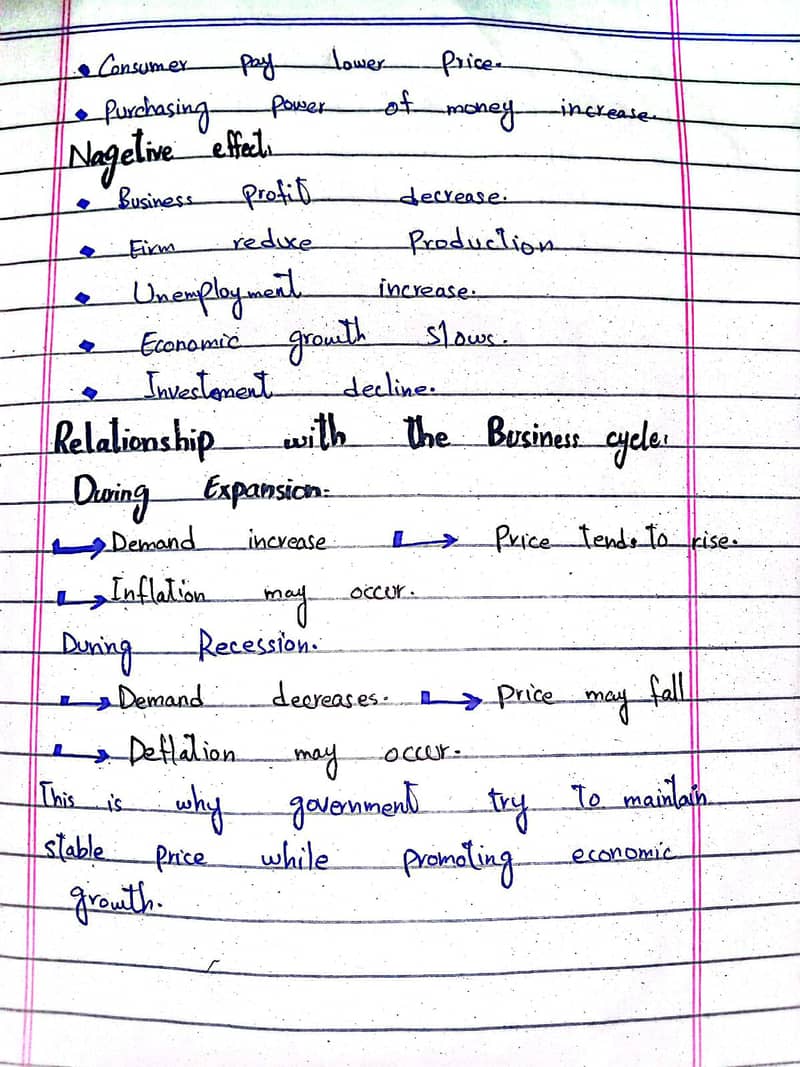 • Consumer pay lower Price.
• Purchasing Power of money increase.
Nagetive effect.
• Business Profit decrease.
• Firm reduce Production
• Unemployment increase.
• Economic growth slows.
• Investement decline.
Relationship with the Business cycle.
During Expansion:-
↳ Demand increase ↳ Price tends to rise.
↳ Inflation may occur.
During Recession.
↳ Demand decreases. ↳ Price may fall
↳ Deflation may occur.
This is why government try to maintain
stable price while promoting economic
growth.